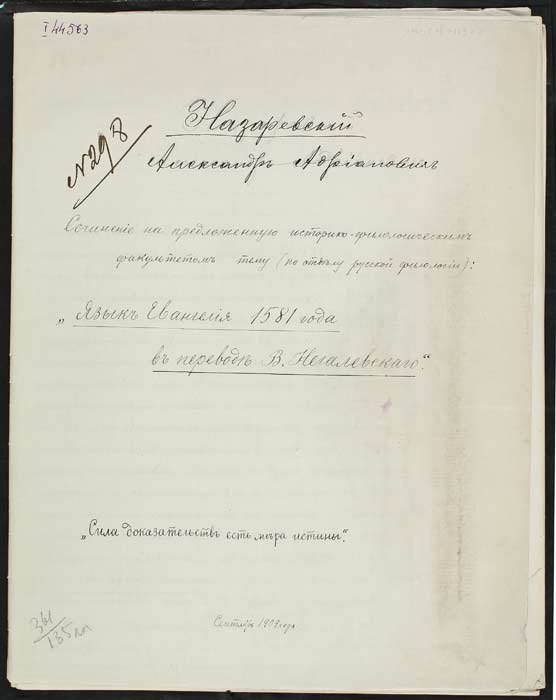 I 44563
N 298
Назаревскій
Александръ Адріановичъ
Сочиненіе на предложенную историко-филологическимъ
факультетомъ тему (по отдѣлу русской филологіи):
„Языкъ Евангелія 1581 года
въ переводѣ В. Негалевскаго“.
„Сила доказательствъ есть мѣра истины“.
Сентябрь 1909 года